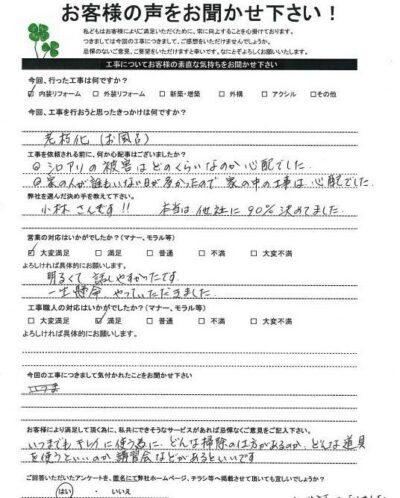 お客様の声をお聞かせ下さい！
私どもはお客様により ご満足いただくために、常に向上することを心掛けております。
つきましては今回の工事につきまして、ご感想をいただけませんでしょうか。
忌憚のないご意見、ご要望をいただけますと幸いです。なにとぞよろしくお願いいたします。
工事についてお客様の素直な気持ちをお聞かせ下さい
今回、行った工事は何ですか？
☑ 内装リフォーム □ 外装リフォーム □ 新築・増築 □ 外構 □ アクシル □その他
今回、工事を行おうと思ったきっかけは何ですか？
老朽化（お風呂）
工事を依頼される前に、何か心配事はございましたか？
◎シロアリの被害はどのくらいなのか心配でした。
◎家の人が誰もいない日が多かったので家の中の工事は心配でした
弊社を選んだ決め手を教えて下さい。
小林さんです!! 本当は他社に90%決めてました。
営業の対応はいかがでしたか？(マナー、モラル等)
☑ 大変満足 □ 満足 □ 普通 □ 不満 □ 大変不満
よろしければ具体的にお願いします。
明るくて話しやすかったです。
一生懸命やっていただきました。
工事職人の対応はいかがでしたか？(マナー、モラル等)
□ 大変満足 ☑ 満足 □ 普通 □ 不満 □ 大変不満
よろしければ具体的にお願いします。
今回の工事につきまして気付かれたことをお聞かせ下さい
お客様により満足して頂く為に、私共にできそうなサービスがあれば忌憚なくご意見をご記入下さい。
いつまでもキレイに使う為に、どんな掃除の仕方があるのか、どんな道具
を使うといいのか講習会などがあるといいです
ご回答いただいたアンケートを、匿名にて弊社ホームページ、チラシ等へ掲載させて頂いても宜しいでしょうか？
はい ・ いいえ